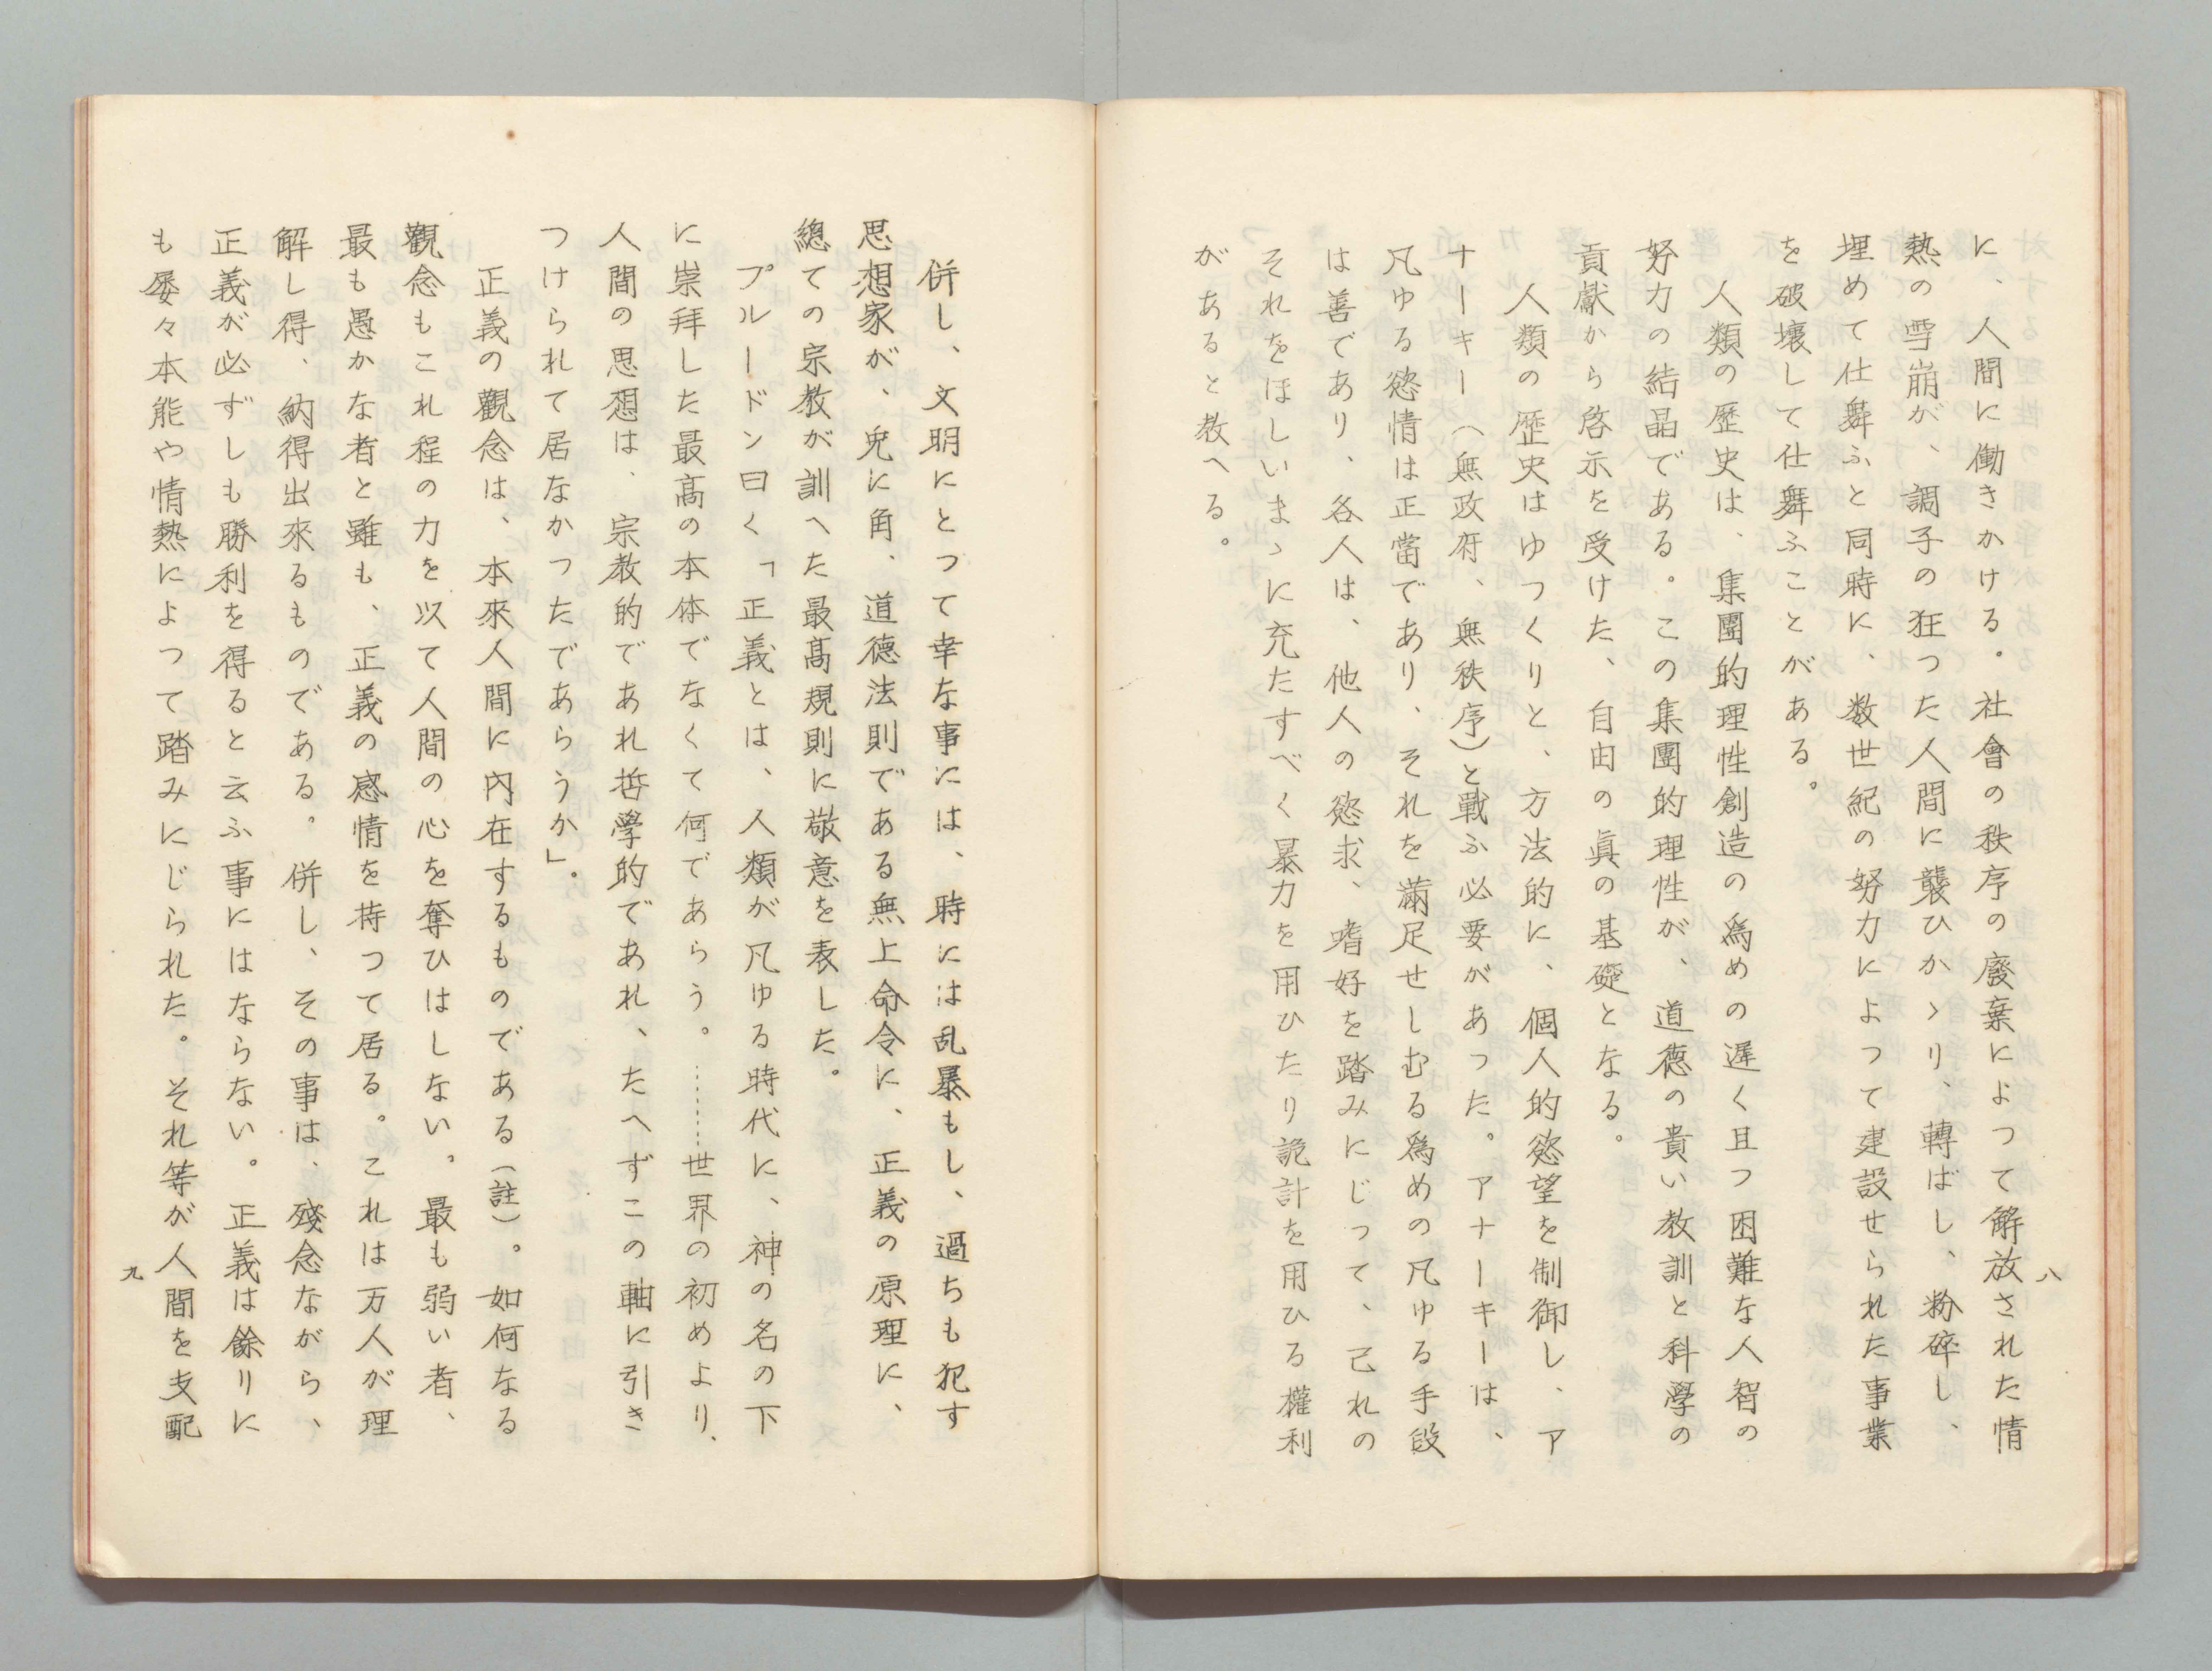 に、人間に働きかける。社會の秩序の廢棄によつて解放された情
熱の雪崩が、調子の狂つた人間に襲ひかゝり、轉ばし、粉碎し、
埋めて仕舞ふと同時に、数世紀の努力によつて建設せられた事業
を破壊して仕舞ふことがある。
人類の歴史は、集團的理性創造の爲めの遅く且つ困難な人智の
努力の結晶である。この集團的理性が、道徳の貴い教訓と科學の
貢獻から啓示を受けた、自由の眞の基礎となる。
人類の歴史はゆつくりと、方法的に、個人的慾望を制御し、ア
ナーキー（無政府、無秩序）と戰ふ必要があつた。アナーキーは、
凡ゆる慾情は正當であり、それを滿足せしむる爲めの凡ゆる手段
は善であり、各人は、他人の慾求、嗜好を踏みにじつて、己れの
それをほしいまゝに充たすべく暴力を用ひたり詭計を用ひる權利
があると教へる。
八
併し、文明にとつて幸な事には、時には乱暴もし、過ちも犯す
思想家が、兎に角、道德法則である無上命令に、正義の原理に、
總ての宗教が訓へた最高規則に敬意を表した。
プルードン曰く「正義とは、人類が凡ゆる時代に、神の名の下
に崇拜した最高の本体でなくて何であらう。………世界の初めより、
人間の思想は、宗教的であれ哲學的であれ、たへずこの軸に引き
つけられて居なかつたであらうか」。
正義の觀念は、本來人間に内在するものである（註）。如何なる
觀念もこれ程の力を以て人間の心を奪ひはしない。最も弱い者、
最も愚かな者と雖も、正義の感情を持つて居る。これは万人が理
解し得、納得出來るものである。併し、その事は、殘念ながら、
正義が必ずしも勝利を得ると云ふ事にはならない。正義は餘りに
も屡々本能や情熱によつて踏みにじられた。それ等が人間を支配
九